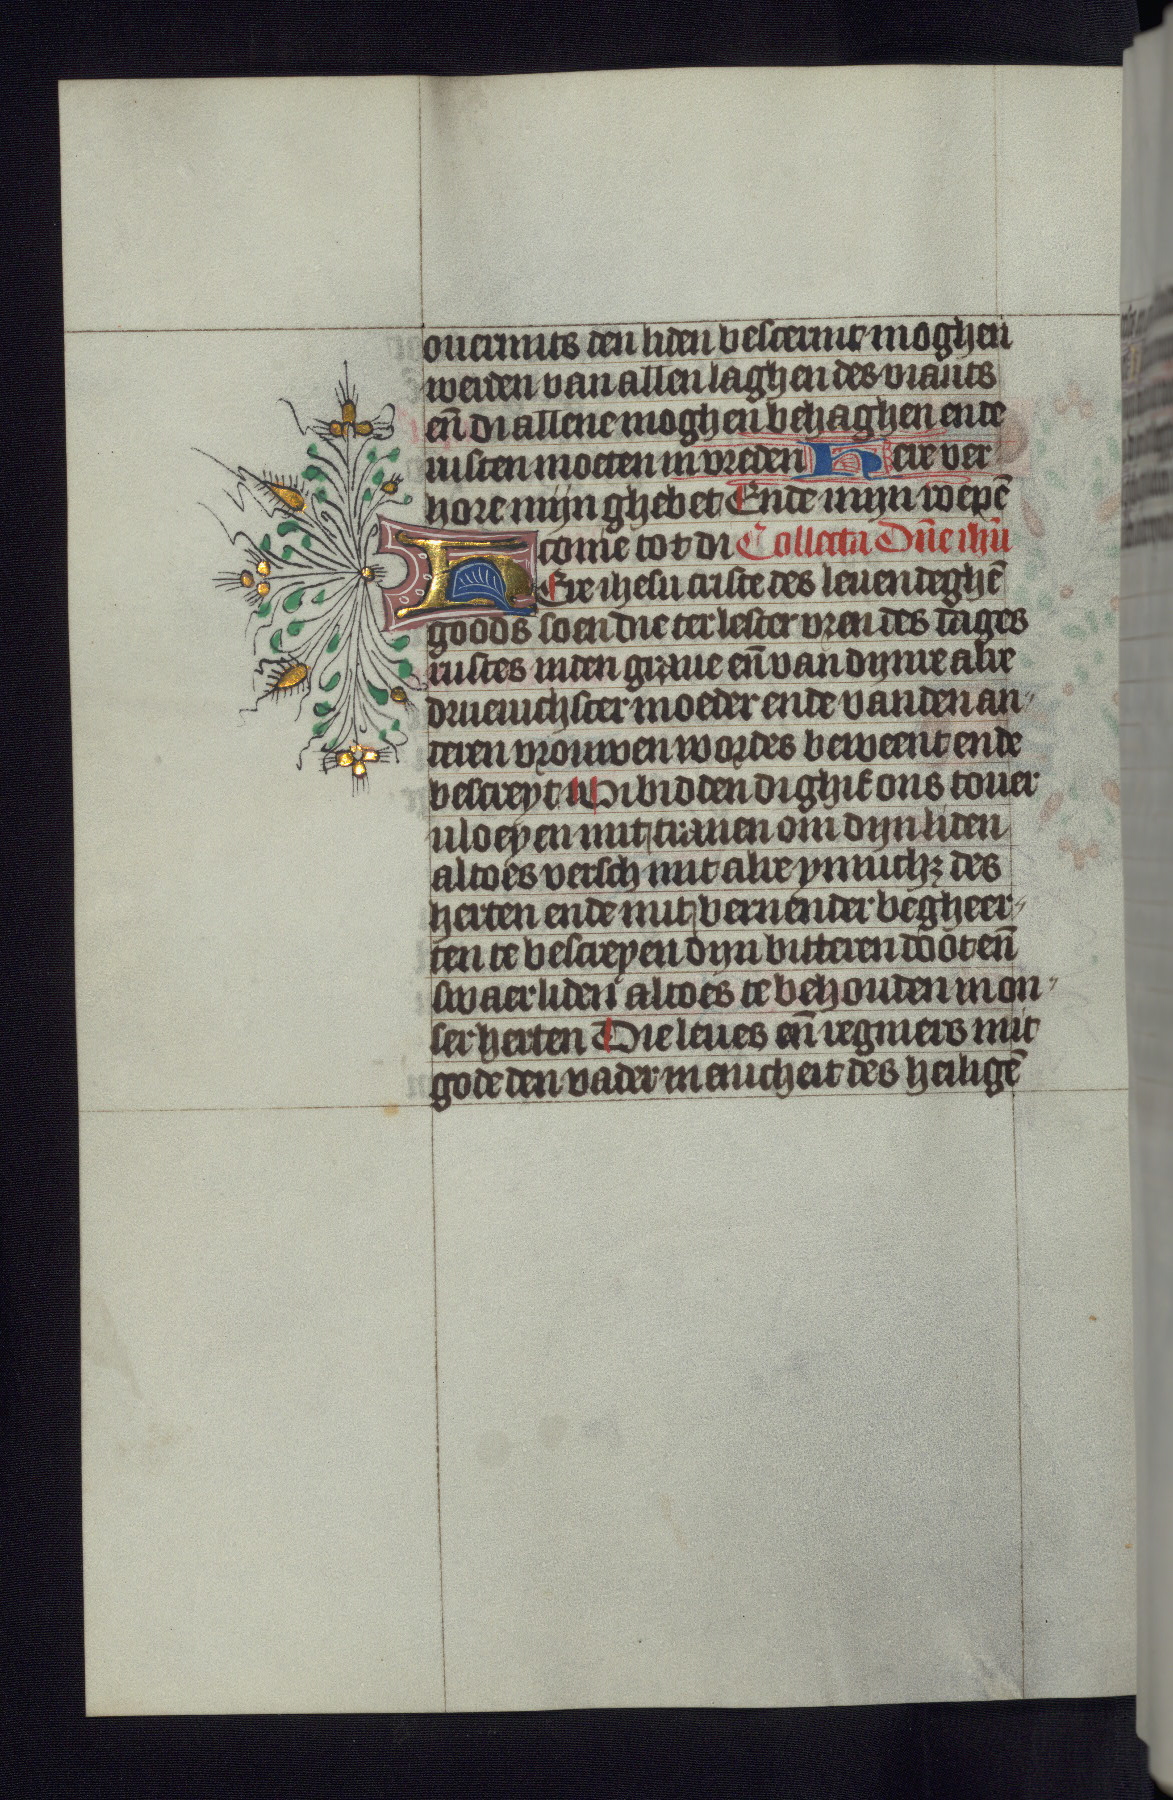 ouermits den liden bescermt moghen
werden van allen laghen des viants
en̄ di allene moghen behaghen ende
rusten moeten in vreden Here ver
hore mijn ghebet Ende mijn roepē
come tot di Collecta Dn̄e ihū
HEre ihesu criste des leuendeghē
goods soen die ter lester vren des dages
rustes inden graue en̄ van dijnre alre
drueuichster moeder ende van den an
deren vrouwen wordes beweent ende
bescreyt Wi bidden di ghif ons touer
vloeyen mit tranen om dijn liden
altoes versch mit alre ynnich des
herten ende mit bernender begheer
ten te bescreyen dijn bitteren doot en̄
swaer liden altoes te behouden in on
ser herten Die leues en̄ regniers mit
gode den vader in enicheit des heiligē